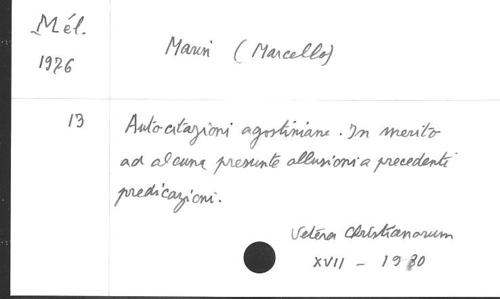 Mél.
1976
Marin (Marcello)
13
Autocitazioni agostiniane. In merito
ad alcune presunte allusioni a precedenti
predicazioni.
Vetera Christianorum
XVII - 1980